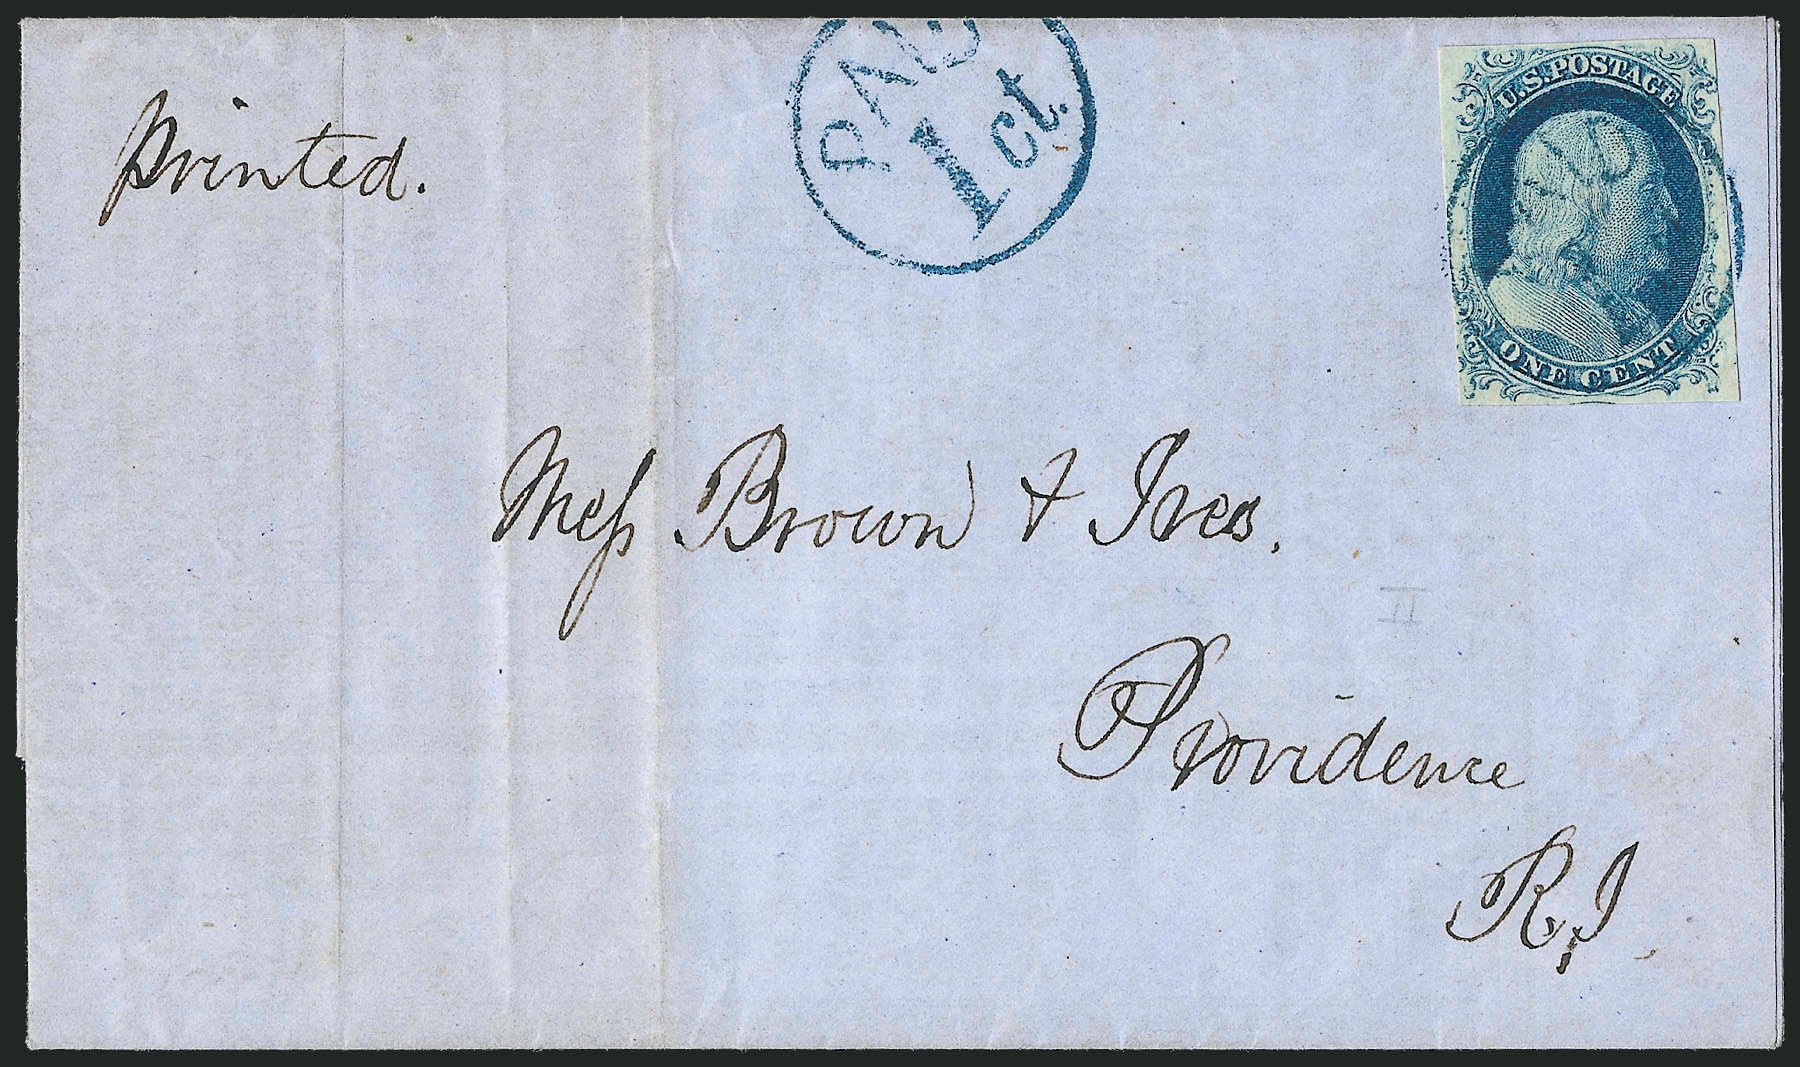 PAID
1 ct.
U.S. POSTAGE
ONE CENT
Printed.
Mess Brown & Ives.
II
Providence
R.I.